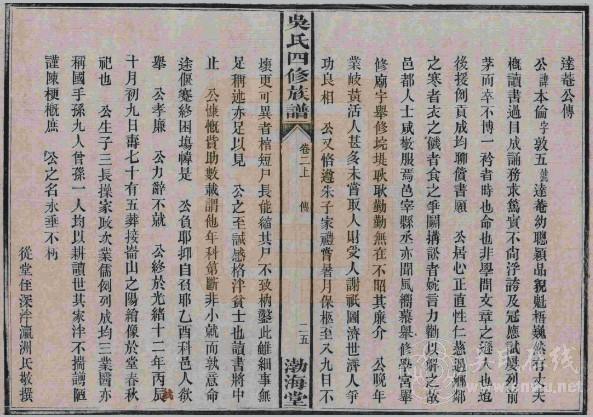 達菴公傳
公諱本倫字敦五號達菴幼聰穎品貌魁梧巍然有大夫
概讀書過目成誦務求篤實不尚浮誇及冠應試屢列前
茅而卒不博一衿者時也命也非學問文章之過人也迨
後援例貢成均聊償書願 公居心正直性仁慈遇鄉鄰
之寒者衣之饑者食之爭鬭搆訟者婉言力勸而解之故
邑都人士咸敬服焉邑宰縣丞亦聞風嚮慕舉修學宮舉
修廟宇舉修垸堤耿耿勤勤無在不昭其廉介 公晚年
業岐黃活人甚多未嘗取人財受人謝祇圖濟世濟人爭
功良相 公又恪遵朱子家禮嘗暑月保柩至八九日不
吳氏四修族譜
卷二上
傳
二五
渤海堂
壞更可異者棺短尸長能縮其尸不致枘鑿此雖細事無
足稱述亦足以見 公之至誠感格泮貧士也讀書將中
止 公慷慨資助數載謂他年科第斷非小就而孰意命
途偃蹇終困場幃是 公負耶抑自召耶乙酉科邑人欲
舉 公孝廉 公力辭不就 公終於光緒十二年丙戌
十月初九日壽七十有五葬接崙山之陽繪像於堂春秋
祀也 公生子三長操家政次業儒例列成均三業醫亦
稱國手孫九人曾孫一人均以耕讀世其家泮不揣謭陋
謹陳梗概庶 公之名永垂不朽
從堂侄深泮瀛洲氏敬撰